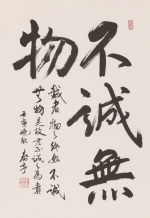 不誠無
物
誠者物之終始不誠
無物是故君子誠之為貴